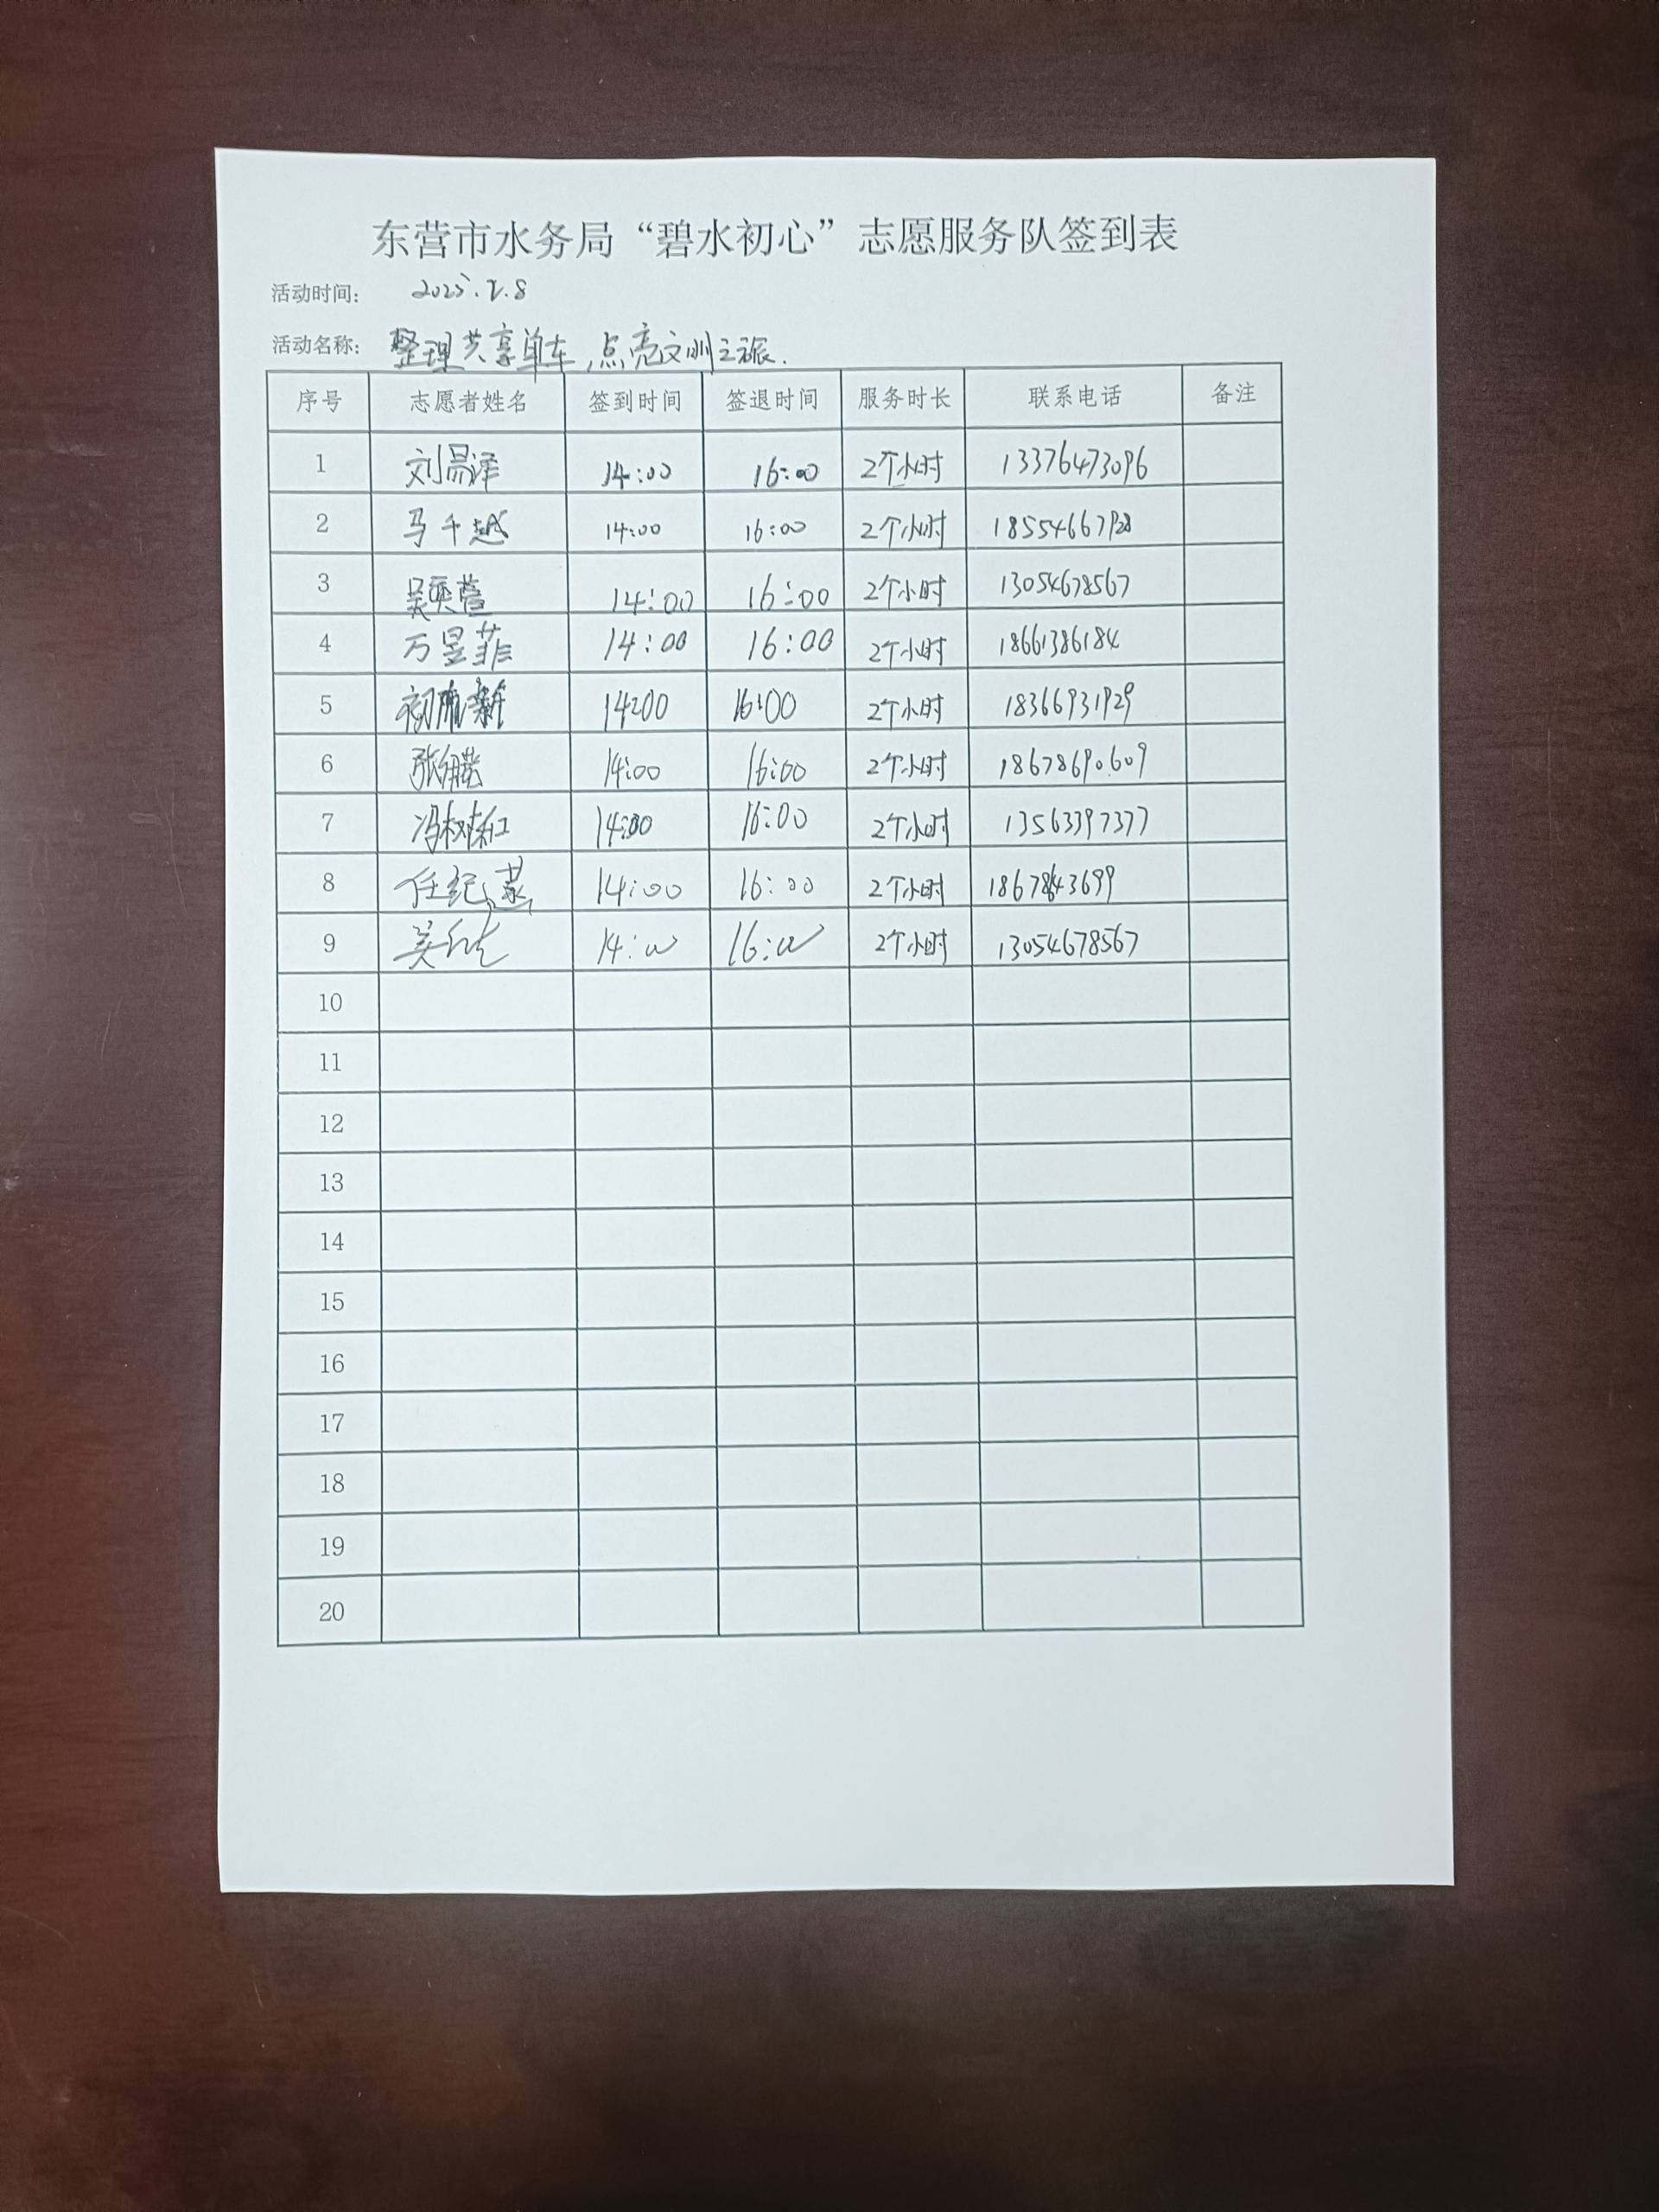 东营市水务局“碧水初心”志愿服务队签到表
活动时间： 2025.7.8
活动名称： 整理共享单车,点亮文明之旅.
序号 志愿者姓名 签到时间 签退时间 服务时长 联系电话 备注
1 刘昜泽 14:00 16:00 2个小时 13376473096
2 马千越 14:00 16:00 2个小时 18554667928
3 吴奕萱 14:00 16:00 2个小时 13054678567
4 万昱菲 14:00 16:00 2个小时 18661386184
5 14:00 16:00 2个小时 18366931929
6 14:00 16:00 2个小时 18678690609
7 冯树红 14:00 16:00 2个小时 13563397377
8 任纪 14:00 16:00 2个小时 18678643699
9 吴 14:00 16:00 2个小时 13054678567
10
11
12
13
14
15
16
17
18
19
20